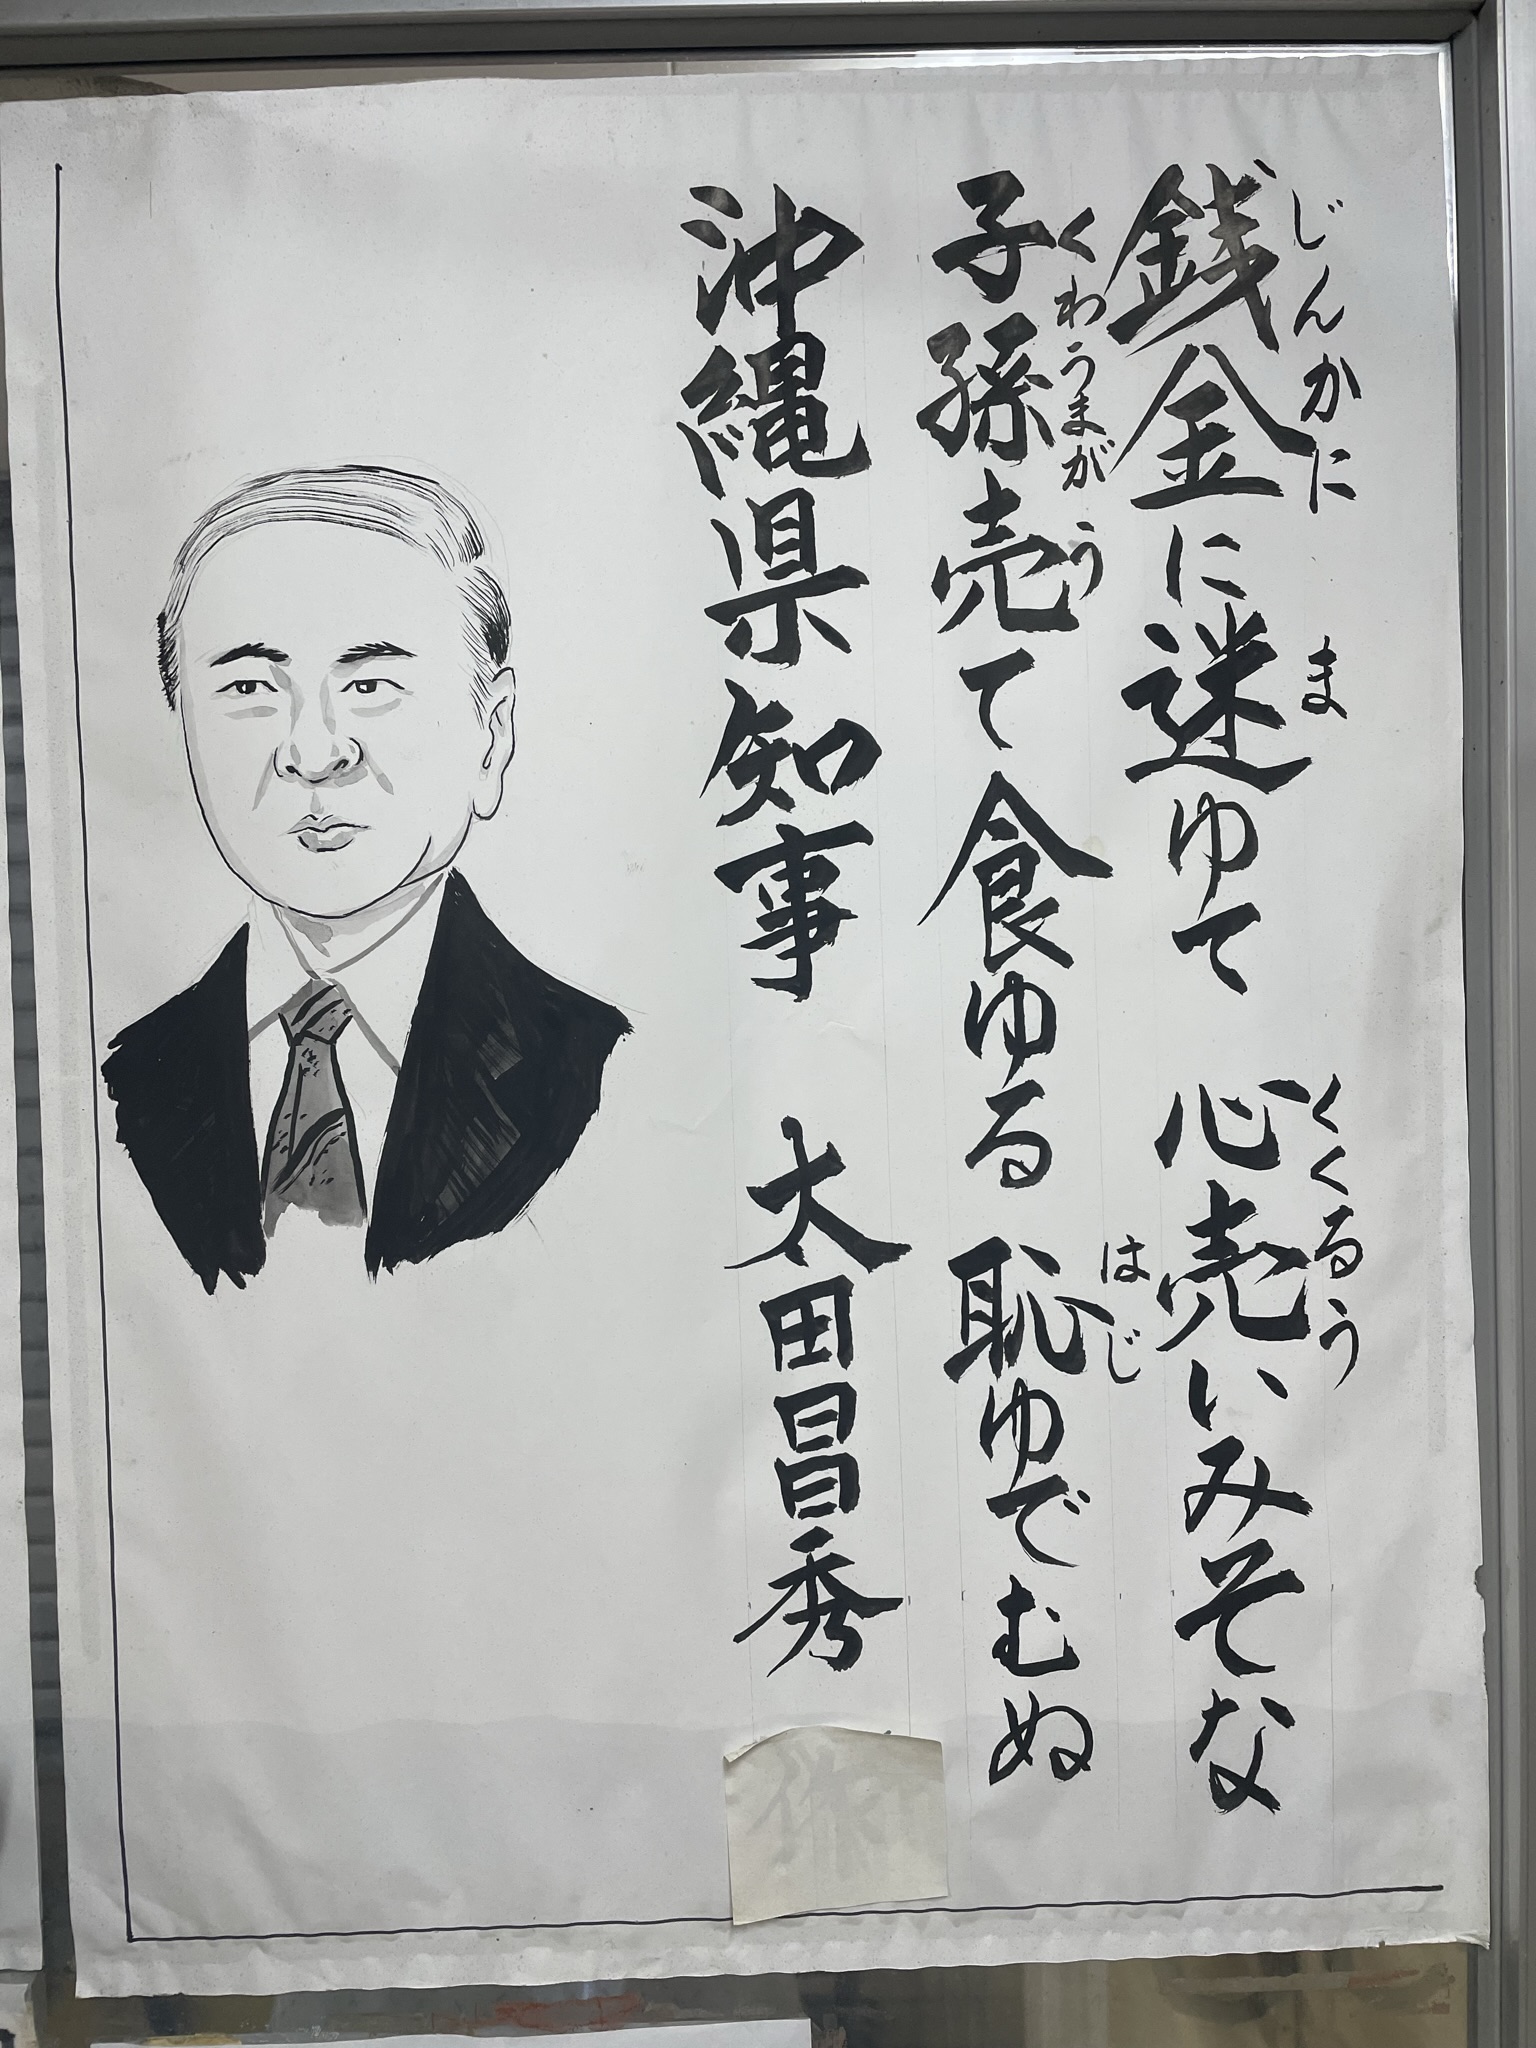 銭金に迷ゆて 心売いみそな
じんかに ま くくるう
子孫売て食ゆる 恥ゆでむぬ
くわうまが う はじ
沖縄県知事 大田昌秀